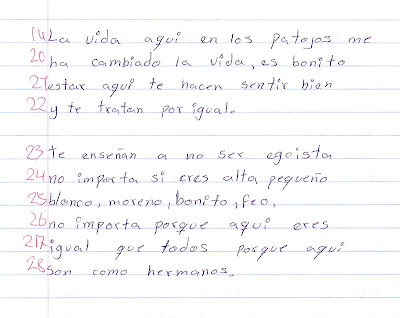 19 La vida aqui en los patojos me
20 ha cambiado la vida, es bonito
21 estar aqui te hacen sentir bien
22 y te tratan por igual.
23 te enseñan a no ser egoista
24 no importa si eres alta pequeño
25 blanco, moreno, bonito, feo,
26 no importa porque aqui eres
27 igual que todos porque aqui
28 son como hermanos.